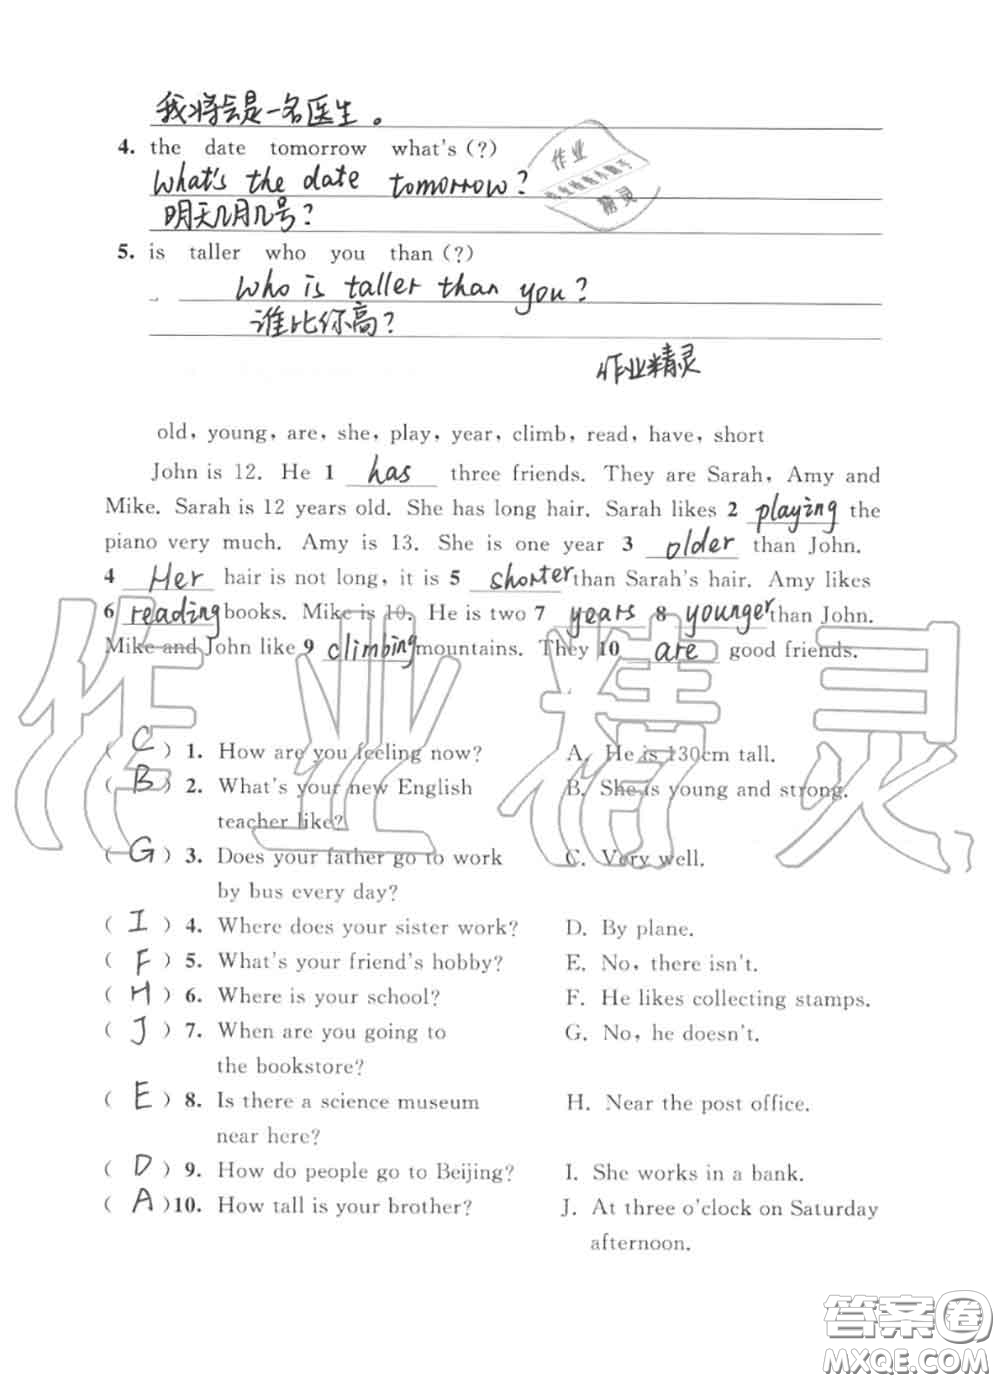 我将会是一名医生。
4. the date tomorrow what's (?)
What's the date tomorrow?
明天几月几号?
5. is taller who you than (?)
Who is taller than you?
谁比你高?
作业精灵
old, young, are, she, play, year, climb, read, have, short
John is 12. He 1 has three friends. They are Sarah, Amy and
Mike. Sarah is 12 years old. She has long hair. Sarah likes 2 playing the
piano very much. Amy is 13. She is one year 3 older than John.
4 Her hair is not long, it is 5 shorter than Sarah's hair. Amy likes
6 reading books. Mike is 10. He is two 7 years 8 younger than John.
Mike and John like 9 climbing mountains. They 10 are good friends.
( C ) 1. How are you feeling now? A. He is 130cm tall.
( B ) 2. What's your new English B. She is young and strong.
teacher like?
( G ) 3. Does your father go to work C. Very well.
by bus every day?
( I ) 4. Where does your sister work? D. By plane.
( F ) 5. What's your friend's hobby? E. No, there isn't.
( H ) 6. Where is your school? F. He likes collecting stamps.
( J ) 7. When are you going to G. No, he doesn't.
the bookstore?
( E ) 8. Is there a science museum H. Near the post office.
near here?
( D ) 9. How do people go to Beijing? I. She works in a bank.
( A )10. How tall is your brother? J. At three o'clock on Saturday
afternoon.
作业精灵
作业
精灵
答案卷
MXQE.COM